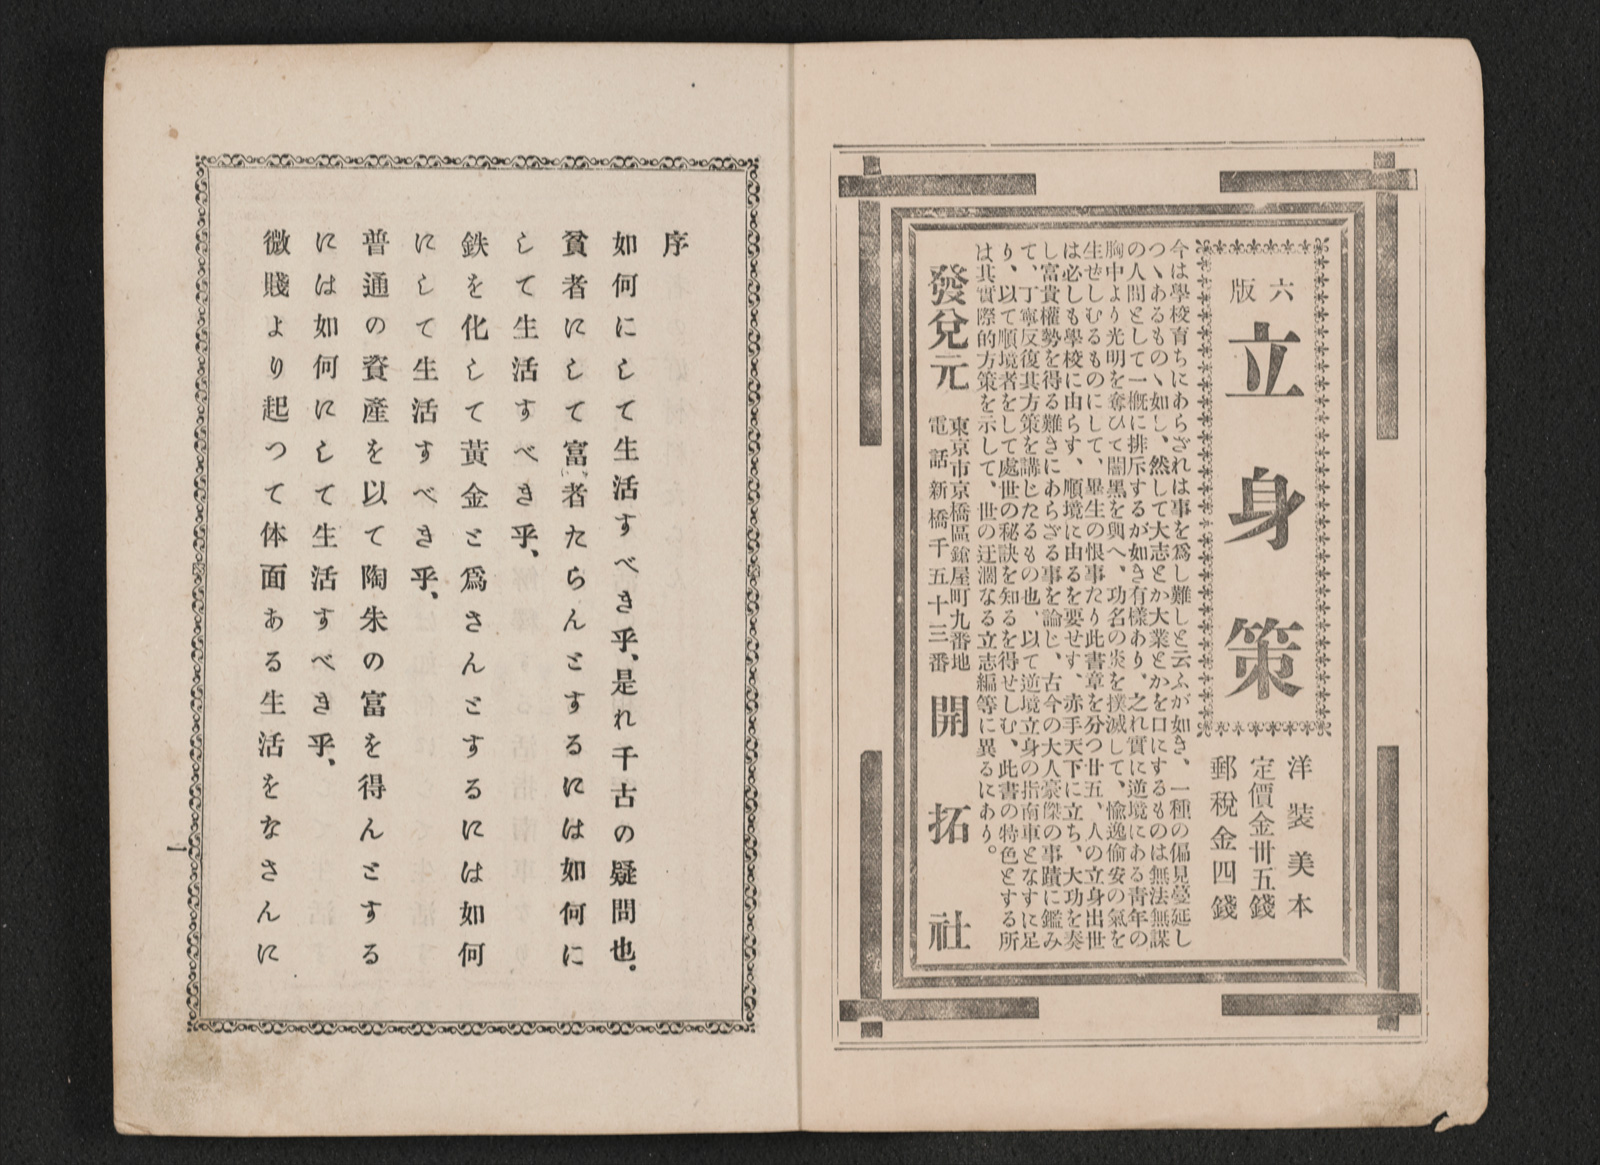 六版
立身策
洋装美本
定價金卅五錢
郵稅金四錢
今は學校育ちにあらざれは事を爲し難しと云ふが如き、一種の偏見蔓延し
つヽあるものヽ如し、然して大志とか大業とかを口にするものは無法無謀
の人間として一慨に排斥するが如き有樣あり、之れ實に逆境にある靑年の
胸中より光明を奪ひて闇黑を與へ、功名の炎を撲滅して、愉逸偷安の氣を
生せしむるものにして、畢生の恨事たり此書章を分つ廿五、人の立身出世
は必しも學校に由らす、順境に由るを要せす、赤手天下に立ち、大功を奏
し富貴權勢を得る難きにあらざる事を論し、古今の大人豪傑の事蹟に鑑み
て、丁寧反復其方策を講じたるもの也、以て逆境立身の指南車となすに足
り、以て順境者をして處世の秘訣を知るを得せしむ、此書の特色とする所
は其實際的方策を示して、世の迂濶なる立志編等に異るにあり。
發兌元
東京市京橋區鎗屋町九番地
電話新橋千五十三番
開拓社
序
如何にして生活すべき乎、是れ千古の疑問也。
貧者にして富者たらんとするには如何に
して生活すべき乎、
鉄を化して黃金と爲さんとするには如何
にして生活すべき乎、
普通の資産を以て陶朱の富を得んとする
には如何にして生活すべき乎、
微賤より起つて体面ある生活をなさんに
一